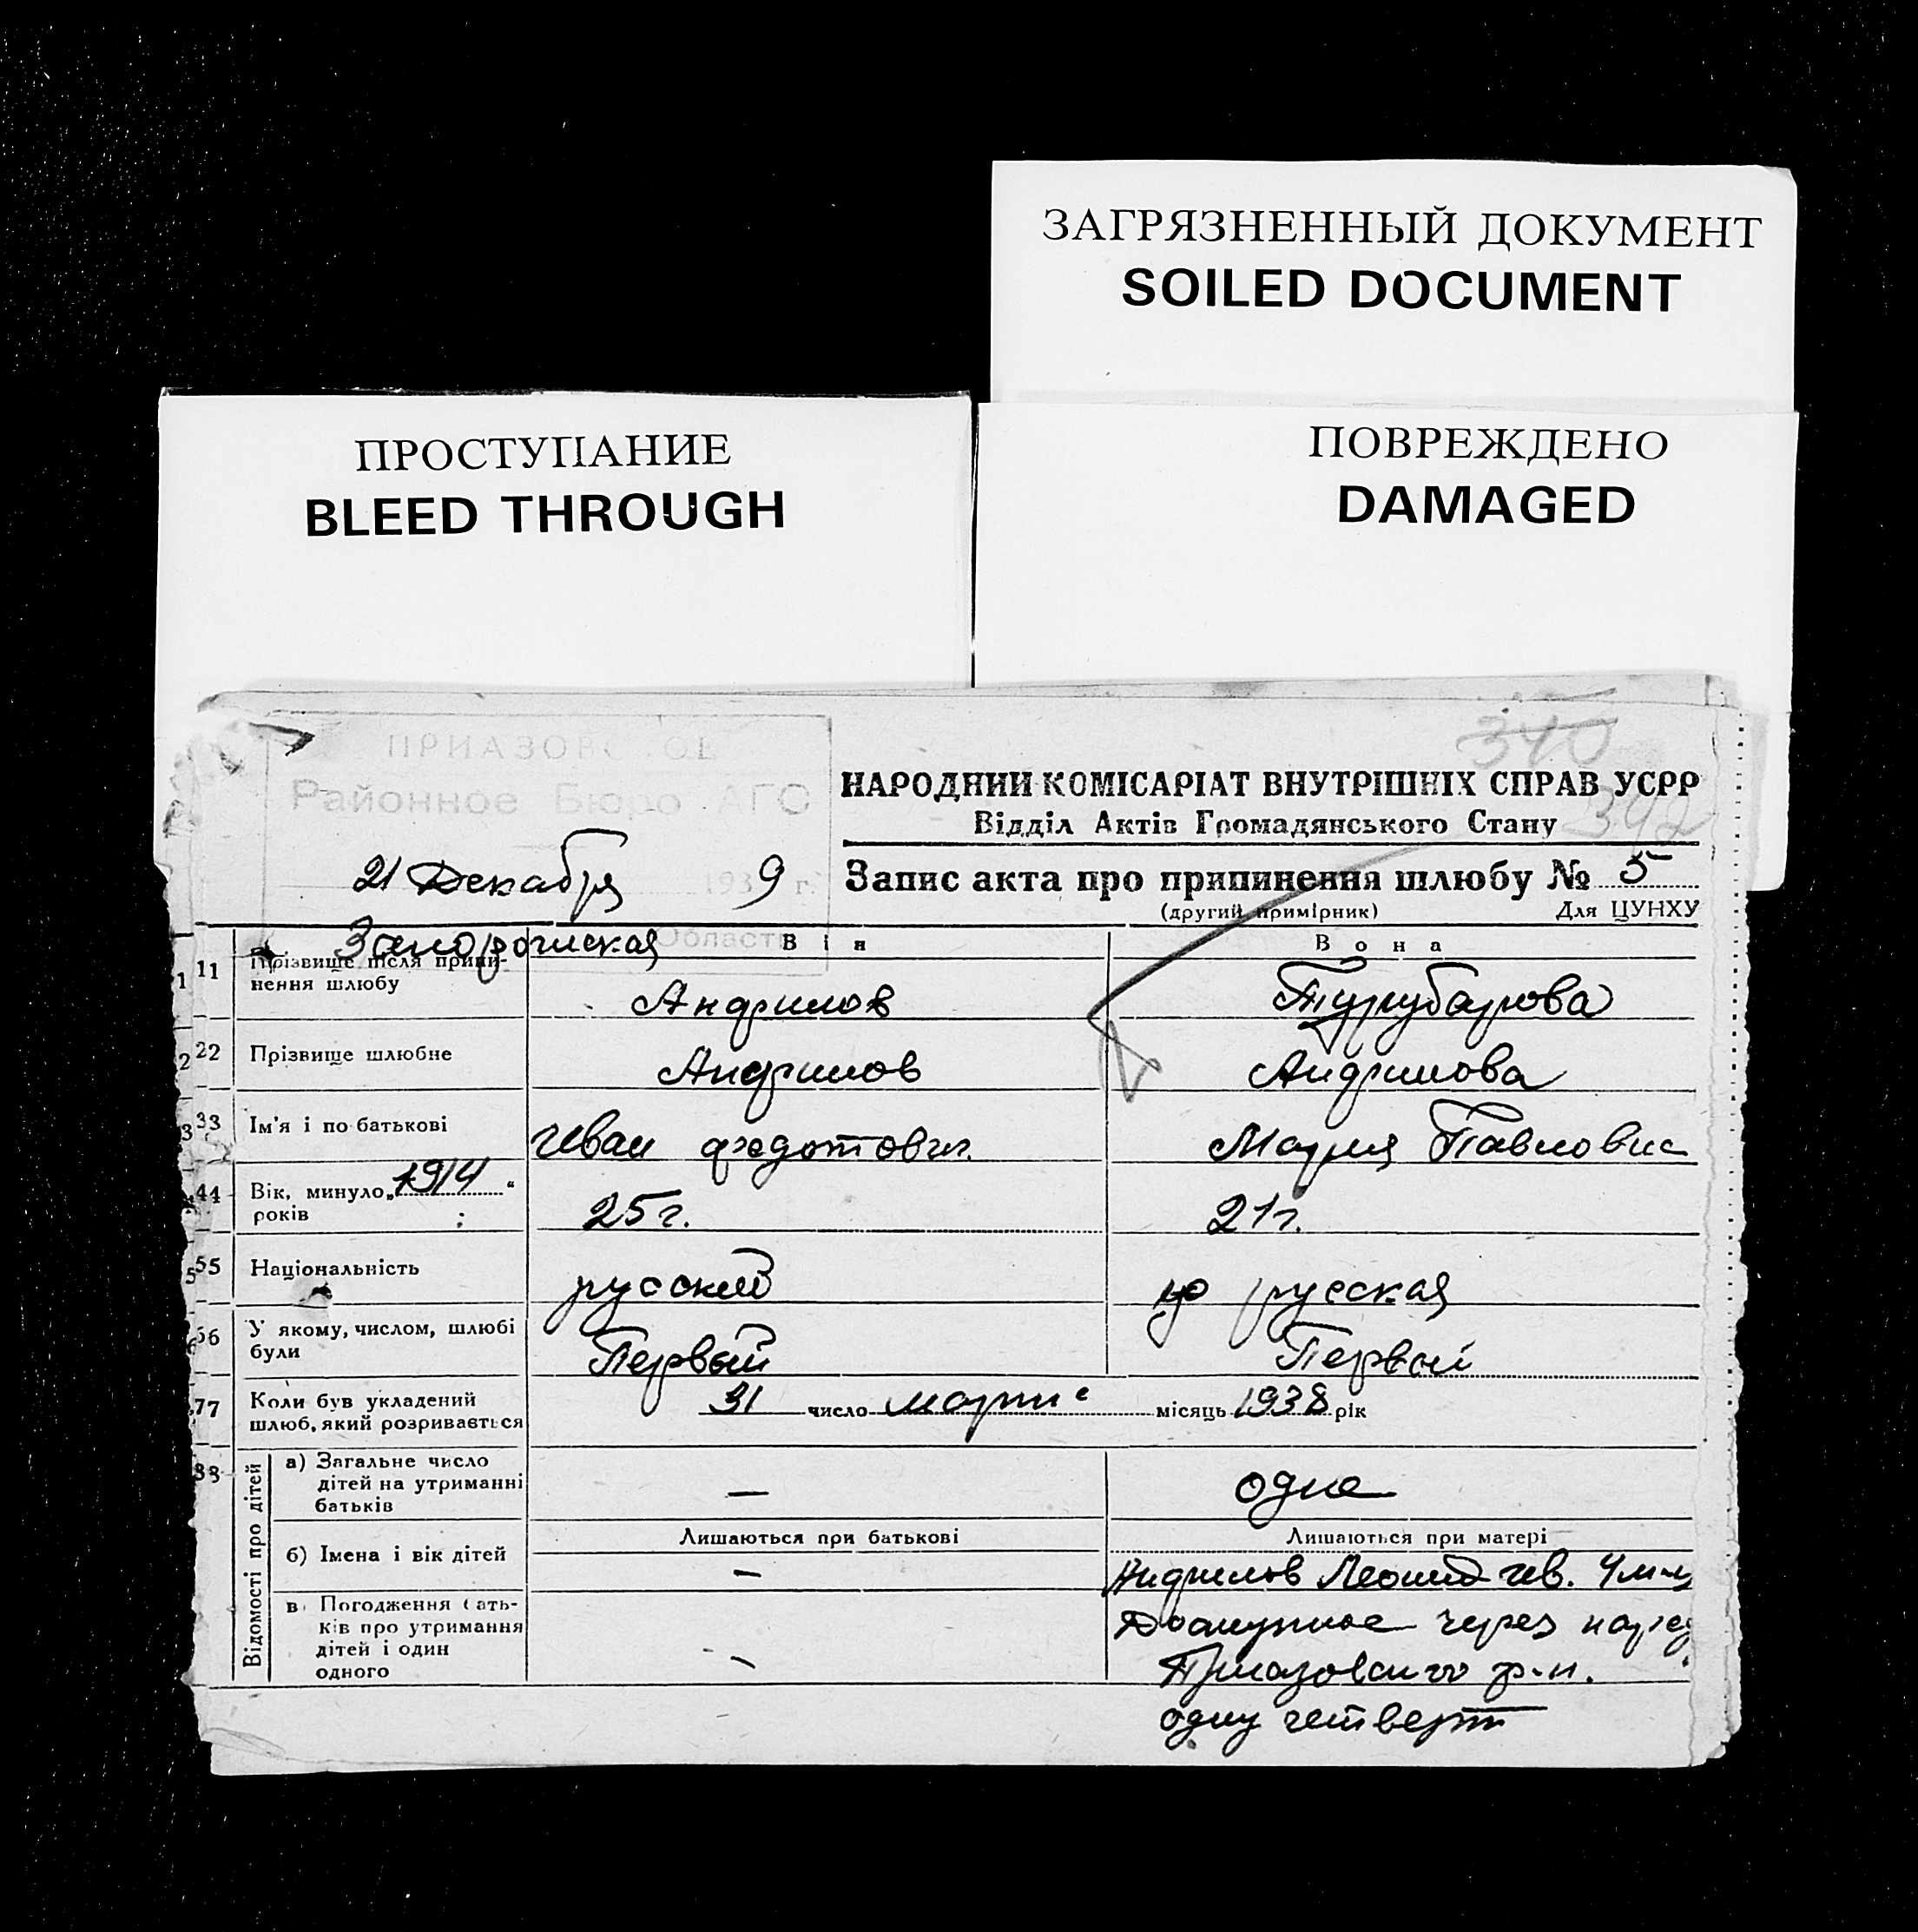 ЗАГРЯЗНЕННЫЙ ДОКУМЕНТ
SOILED DOCUMENT
ПРОСТУПАНИЕ
BLEED THROUGH
ПОВРЕЖДЕНО
DAMAGED
340
392
Районное Бюро АГС
21 Декабря 1939 г.
Запорожская Області
НАРОДНИЙ КОМІСАРІАТ ВНУТРІШНІХ СПРАВ УСРР
Відділ Актів Громадянського Стану
Запис акта про припинення шлюбу № 5
(другий примірник) Для ЦУНХУ
Він Вона
1 11 Прізвище після припи-
нення шлюбу
Турубарова
2 22 Прізвище шлюбне
3 33 Ім'я і по батькові Иван Федотович Мария Павловна
44 Вік, минуло „1914“
років : 25 г. 21 г.
5 55 Національність русский русская
66 У якому, числом, шлюбі
були Первый Первый
77 Коли був укладений
шлюб, який розривається 31 число марта місяць 1938 рік
88 Відомості про дітей
а) Загальне число
дітей на утриманні
батьків — одна
Лишаються при батькові Лишаються при матері
б) Імена і вік дітей — Леонид Ив. 4
в. Погодження бать-
ків про утримання
дітей і один
одного — через
Приазовского р-н.
одну четверть